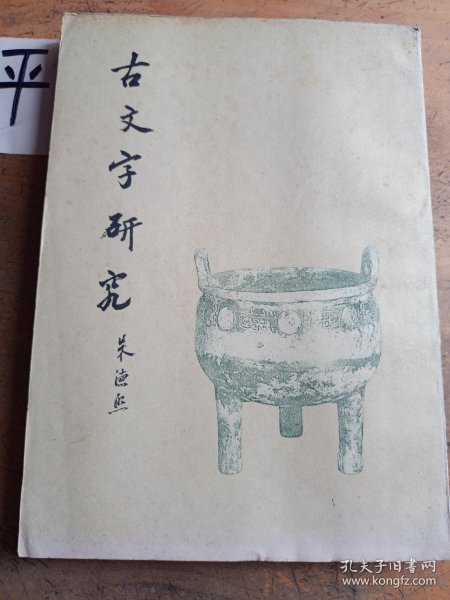 平
古文字研究
朱德熙
孔夫子旧书网
www.kongfz.com